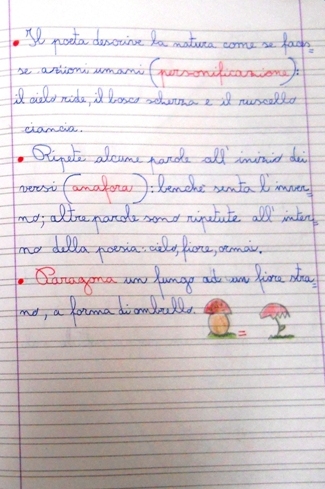 • Il poeta descrive la natura come se faces=
se azioni umani (personificazione):
il cielo ride, il bosco scherza e il ruscello
ciancia.
• Ripete alcune parole all'inizio dei
versi (anafora): benché senta l'inver=
no; altre parole sono ripetute all'inter=
no della poesia: cielo, fiore, ormai.
• Paragona un fungo ad un fiore stra=
no, a forma di ombrello. =